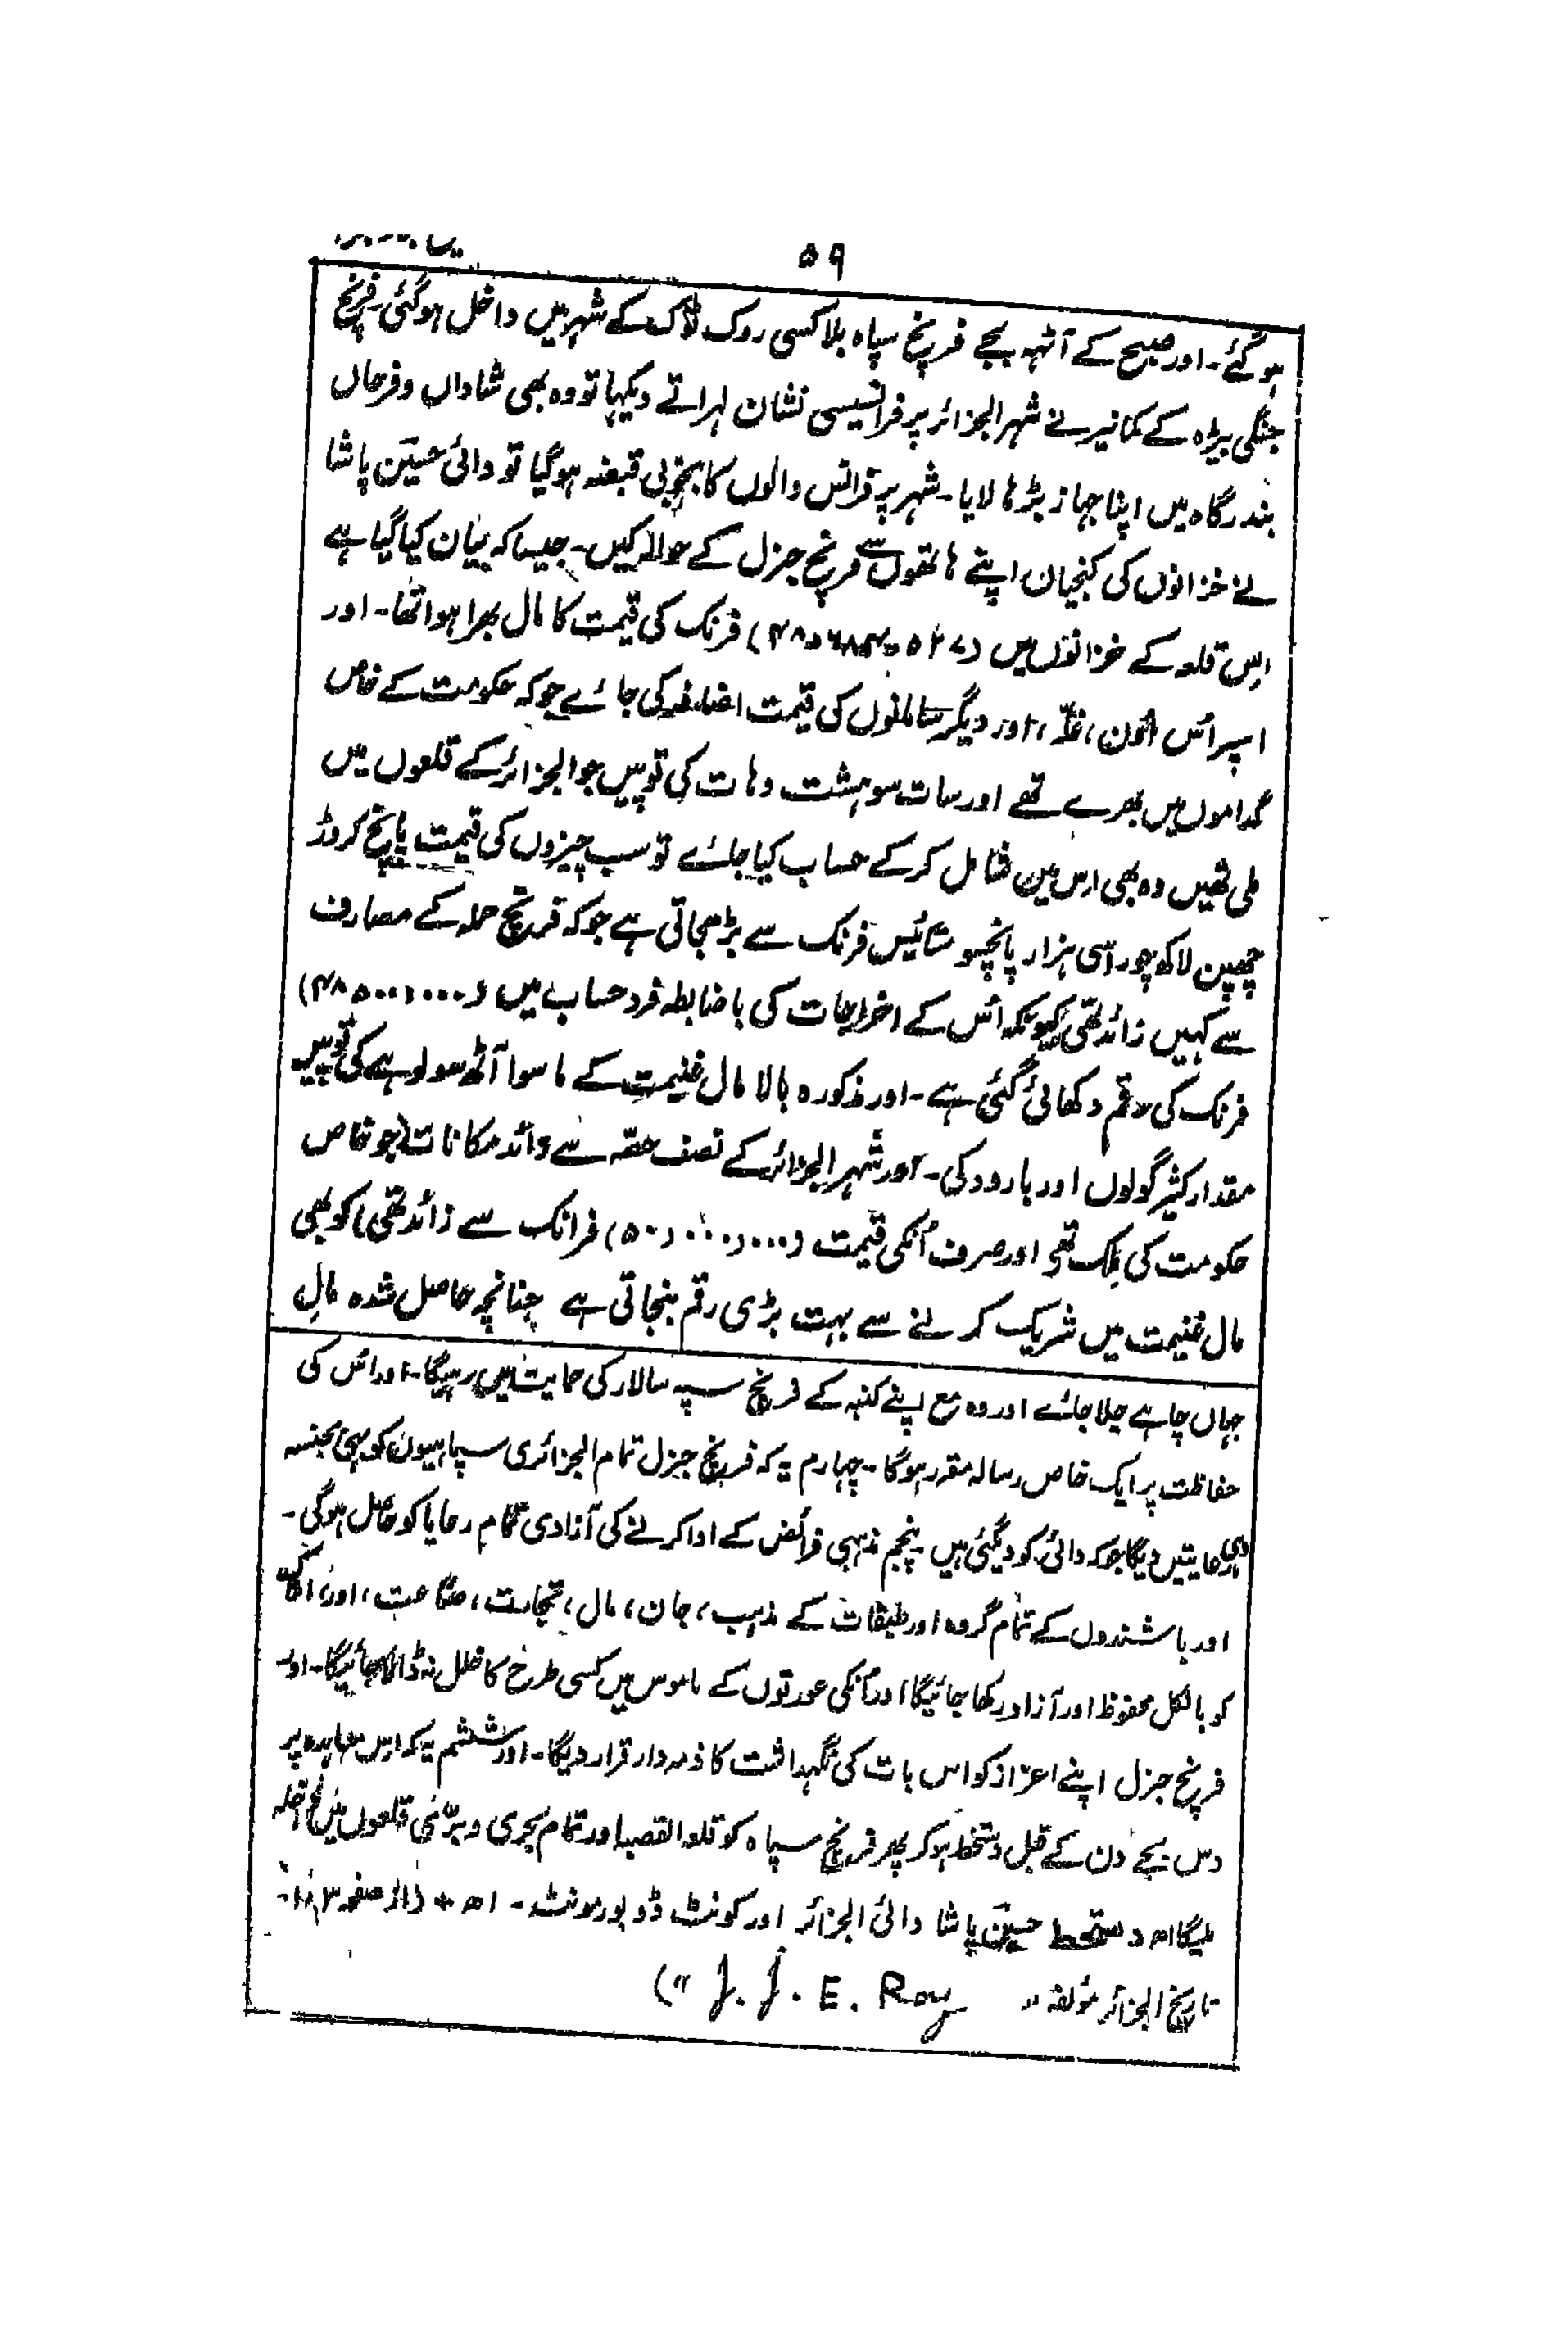 ۵۹
ہوگئے۔ اور صبح کے آٹھہ بجے فرنچ سپاہ بلا کسی روک ٹوک کے شہر میں داخل ہوگئی۔ فرنچ
جنگی بیڑہ کے کمانیر نے شہر الجزائر پر فرانسیسی نشان لہراتے دیکہا تو وہ بھی شاداں وفرحاں
بندرگاہ میں اپنا جہاز بڑہا لایا۔ شہر پر فرانس والوں کا بخوبی قبضہ ہوگیا تو دائی حسین پاشا
نے خزانوں کی کنجیان اپنے ہاتھوں سے فرنچ جنرل کے حوالہ کیں۔ جیسا کہ بیان کیا گیا ہے
اس قلعہ کے خزانوں میں فرنک کی قیمت کا مال بھرا ہوا تھا۔ اور
اسپر اُس اُون، غلّہ، اور دیگر سامانوں کی قیمت اضافہ کی جائے جو کہ حکومت کے خاص
گداموں میں بھرے تھے اور سات سو ہشت دہات کی توپیں جو الجزائر کے قلعوں میں
ملی تھیں وہ بھی اس مین شامل کرکے حساب کیا جائے تو سب چیزوں کی قیمت پانچ کروڑ
چھپن لاکھ چوراسی ہزار پانچسو ستائیس فرنک سے بڑھجاتی ہے جو کہ فرنچ حملہ کے مصارف
سے کہیں زائد تھی کیونکہ اُس کے اخراجات کی باضابطہ فرد حساب میں (۴۸۵۰۰،۰۰۰)
فرنک کی رقم دکھائی گئی ہے۔ اور مذکورہ بالا مال غنیمت کے ماسوا آٹھ سو لوہے کی توپیں
مقدار کثیر گولوں اور بارود کی۔ اور شہر الجزائر کے نصف حصّہ سے زائد مکانات (جو خاص
حکومت کی ملک تھے اور صرف اُنکی قیمت (۵۰،۰۰۰،۰۰۰) فرانک سے زائد تھی) کو بھی
مال غنیمت میں شریک کرنے سے بہت بڑی رقم بنجاتی ہے چنانچہ حاصل شدہ مالِ
جہاں چاہے چلا جائے اور وہ مع اپنے کنبہ کے فرنچ سپہ سالار کی حمایت میں رہیگا۔ اور اس کی
حفاظت پر ایک خاص رسالہ مقرر ہوگا۔ چہارم یہ کہ فرنچ جنرل تمام الجزائری سپاہیون کو بھی بجنسہ
وہی رعایتیں دیگا جو کہ دائی کو دیگئی ہیں۔ پنجم مذہبی فرائض کے ادا کرنے کی آزادی تمام رعایا کو حاصل ہوگی۔
اور باشندوں کے تمام گروہ اور طبقات کے مذہب، جان، مال، تجارت، صناعت، اور املاک
کو بالکل محفوظ اور آزاد رکھا جائیگا اور اُنکی عورتوں کے ناموس میں کسی طرح کا خلل نہ ڈالا جائیگا۔ اور
فرنچ جنرل اپنے اعزاز کو اس بات کی نگہداشت کا ذمہ دار قرار دیگا۔ اور ششم یہ کہ اس معاہدہ پر
دس بجے دن کے قبل دستخط ہوکر پھر فرنچ سپاہ کو قلعہ القصبہ اور تمام بحری و برّی قلعوں میں داخلہ
ملیگا اھ دستخط حسین پاشا دائی الجزائر اور کونٹ ڈو بورمونٹ۔ اھ + (از صفحہ
تاریخ الجزائر مؤلفہ " J. J. E. Roy ")